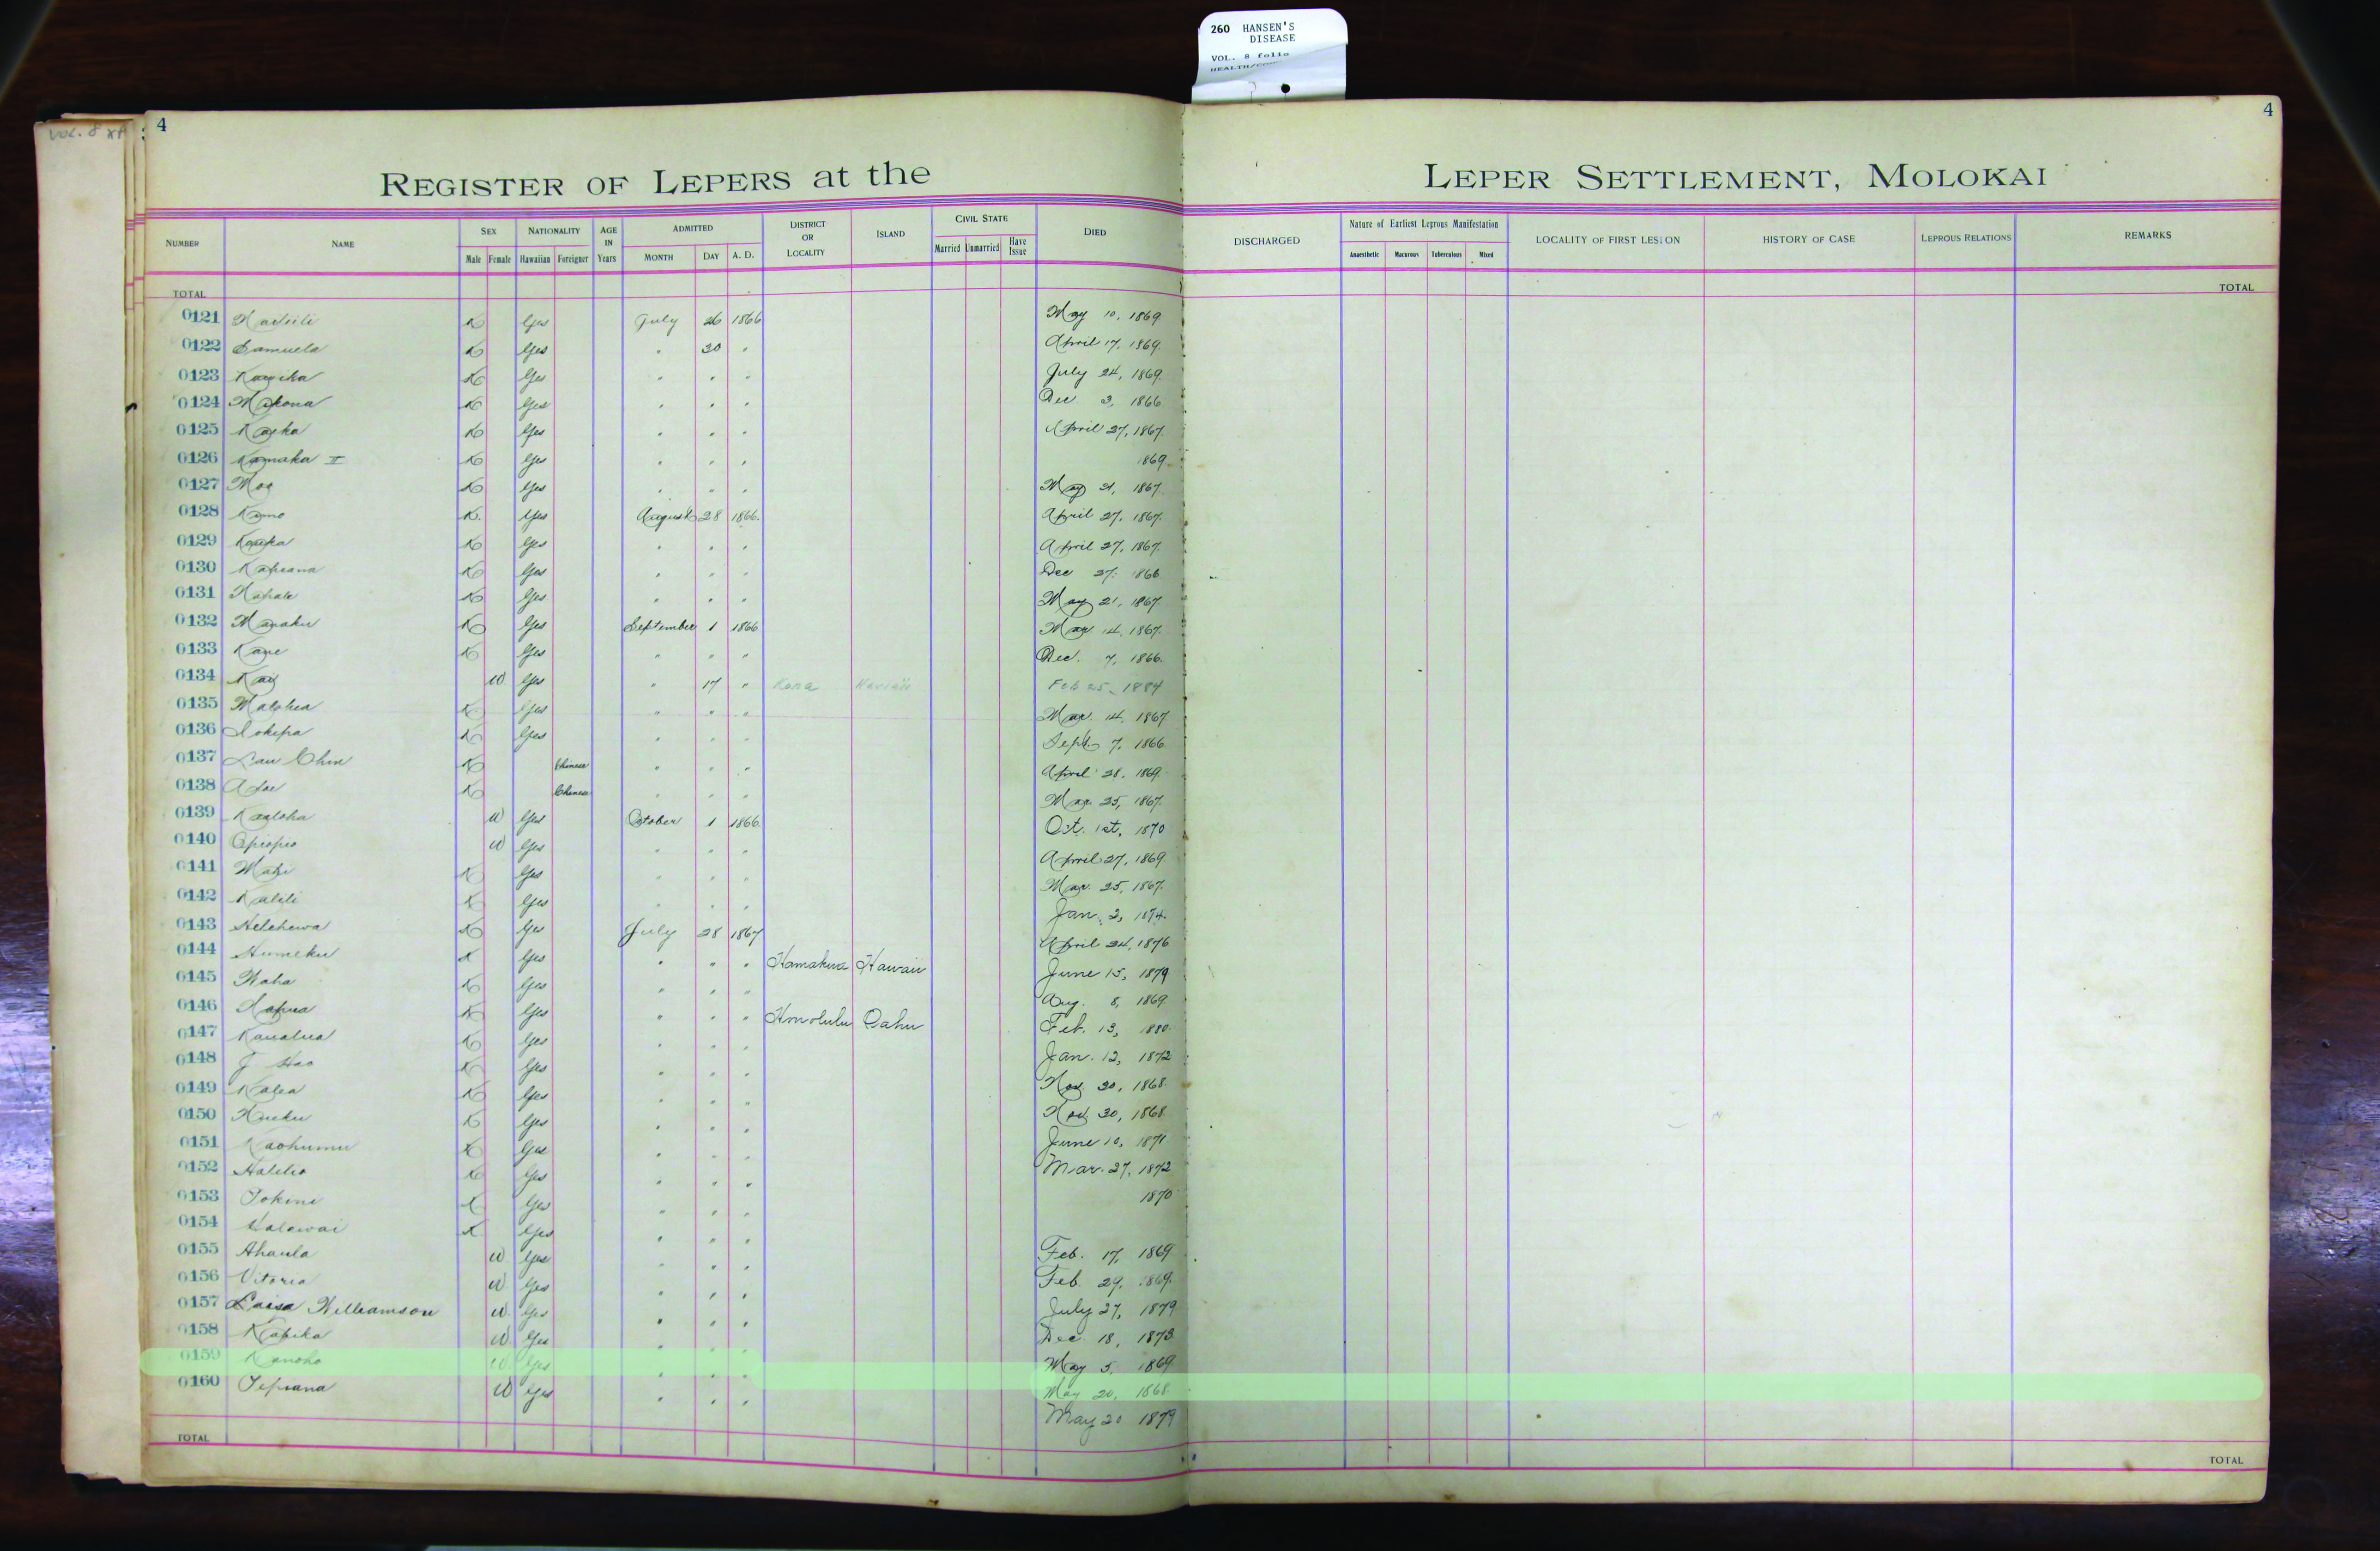 260 HANSEN'S
DISEASE
VOL. 8 folio
4
4
REGISTER OF LEPERS at the LEPER SETTLEMENT, MOLOKAI
NUMBER NAME SEX Male Female NATIONALITY Hawaiian Foreigner AGE IN Years ADMITTED MONTH DAY A. D. DISTRICT OR LOCALITY ISLAND CIVIL STATE Married Unmarried Have Issue DIED DISCHARGED Nature of Earliest Leprous Manifestation Anaesthetic Macurous Tuberculous Mixed LOCALITY OF FIRST LESION HISTORY OF CASE LEPROUS RELATIONS REMARKS
TOTAL TOTAL
0121 K Yes July 26 1866 May 10, 1869
0122 Samuela K Yes " 30 " April 17, 1869.
0123 K Yes " " " July 24, 1869.
0124 Makona K Yes " " " Dec. 3, 1866
0125 K Yes " " " April 27, 1867.
0126 Kamaka II K Yes " " " 1869
0127 Moa K Yes " " " May 21, 1867.
0128 K. Yes August 28 1866. April 27, 1867.
0129 K Yes " " " April 27, 1867.
0130 Kapeana K Yes " " " Dec 27, 1866
0131 K Yes " " " May 21, 1867.
0132 K Yes September 1 1866 Mar 14, 1867.
0133 K Yes " " " Dec. 7, 1866.
0134 W. Yes " 17 " Kona Hawaii Feb 25, 1884
0135 K Yes " " " Mar. 14, 1867
0136 Iokepa K Yes " " " Sept. 7, 1866
0137 Lau Chin K Chinese " " " April 28, 1869.
0138 K Chinese " " " Mar. 25, 1867.
0139 W Yes October 1 1866. Oct. 1st, 1870
0140 Opiopio W Yes " " " April 27, 1869.
0141 K Yes " " " Mar. 25, 1867.
0142 K Yes " " " Jan. 3, 1874.
0143 Helehewa K Yes July 28 1867 April 24, 1876
0144 Humeku K Yes " " " Hamakua Hawaii June 15, 1879
0145 K Yes " " " Aug. 8, 1869.
0146 K Yes " " " Honolulu Oahu Feb. 13, 1880.
0147 Kaualua K Yes " " " Jan. 12, 1872
0148 K Yes " " " Nov. 30, 1868.
0149 Kalea K Yes " " " Nov. 30, 1868
0150 K Yes " " " June 10, 1871
0151 Kaohumu K Yes " " " Mar. 27, 1872
0152 Halelio K Yes " " " 1870
0153 Iokini K Yes " " "
0154 Halawai K Yes " " " Feb. 17, 1869
0155 Ahaula W Yes " " " Feb. 29, 1869.
0156 Vitoria W Yes " " " July 27, 1879
0157 Laisa Williamson W Yes " " " Dec. 18, 1873.
0158 Kapeka W Yes " " " May 5, 1869
0159 Kanoho W Yes " " " May 20, 1868
0160 Tepiana W Yes " " " May 20 1879
TOTAL TOTAL